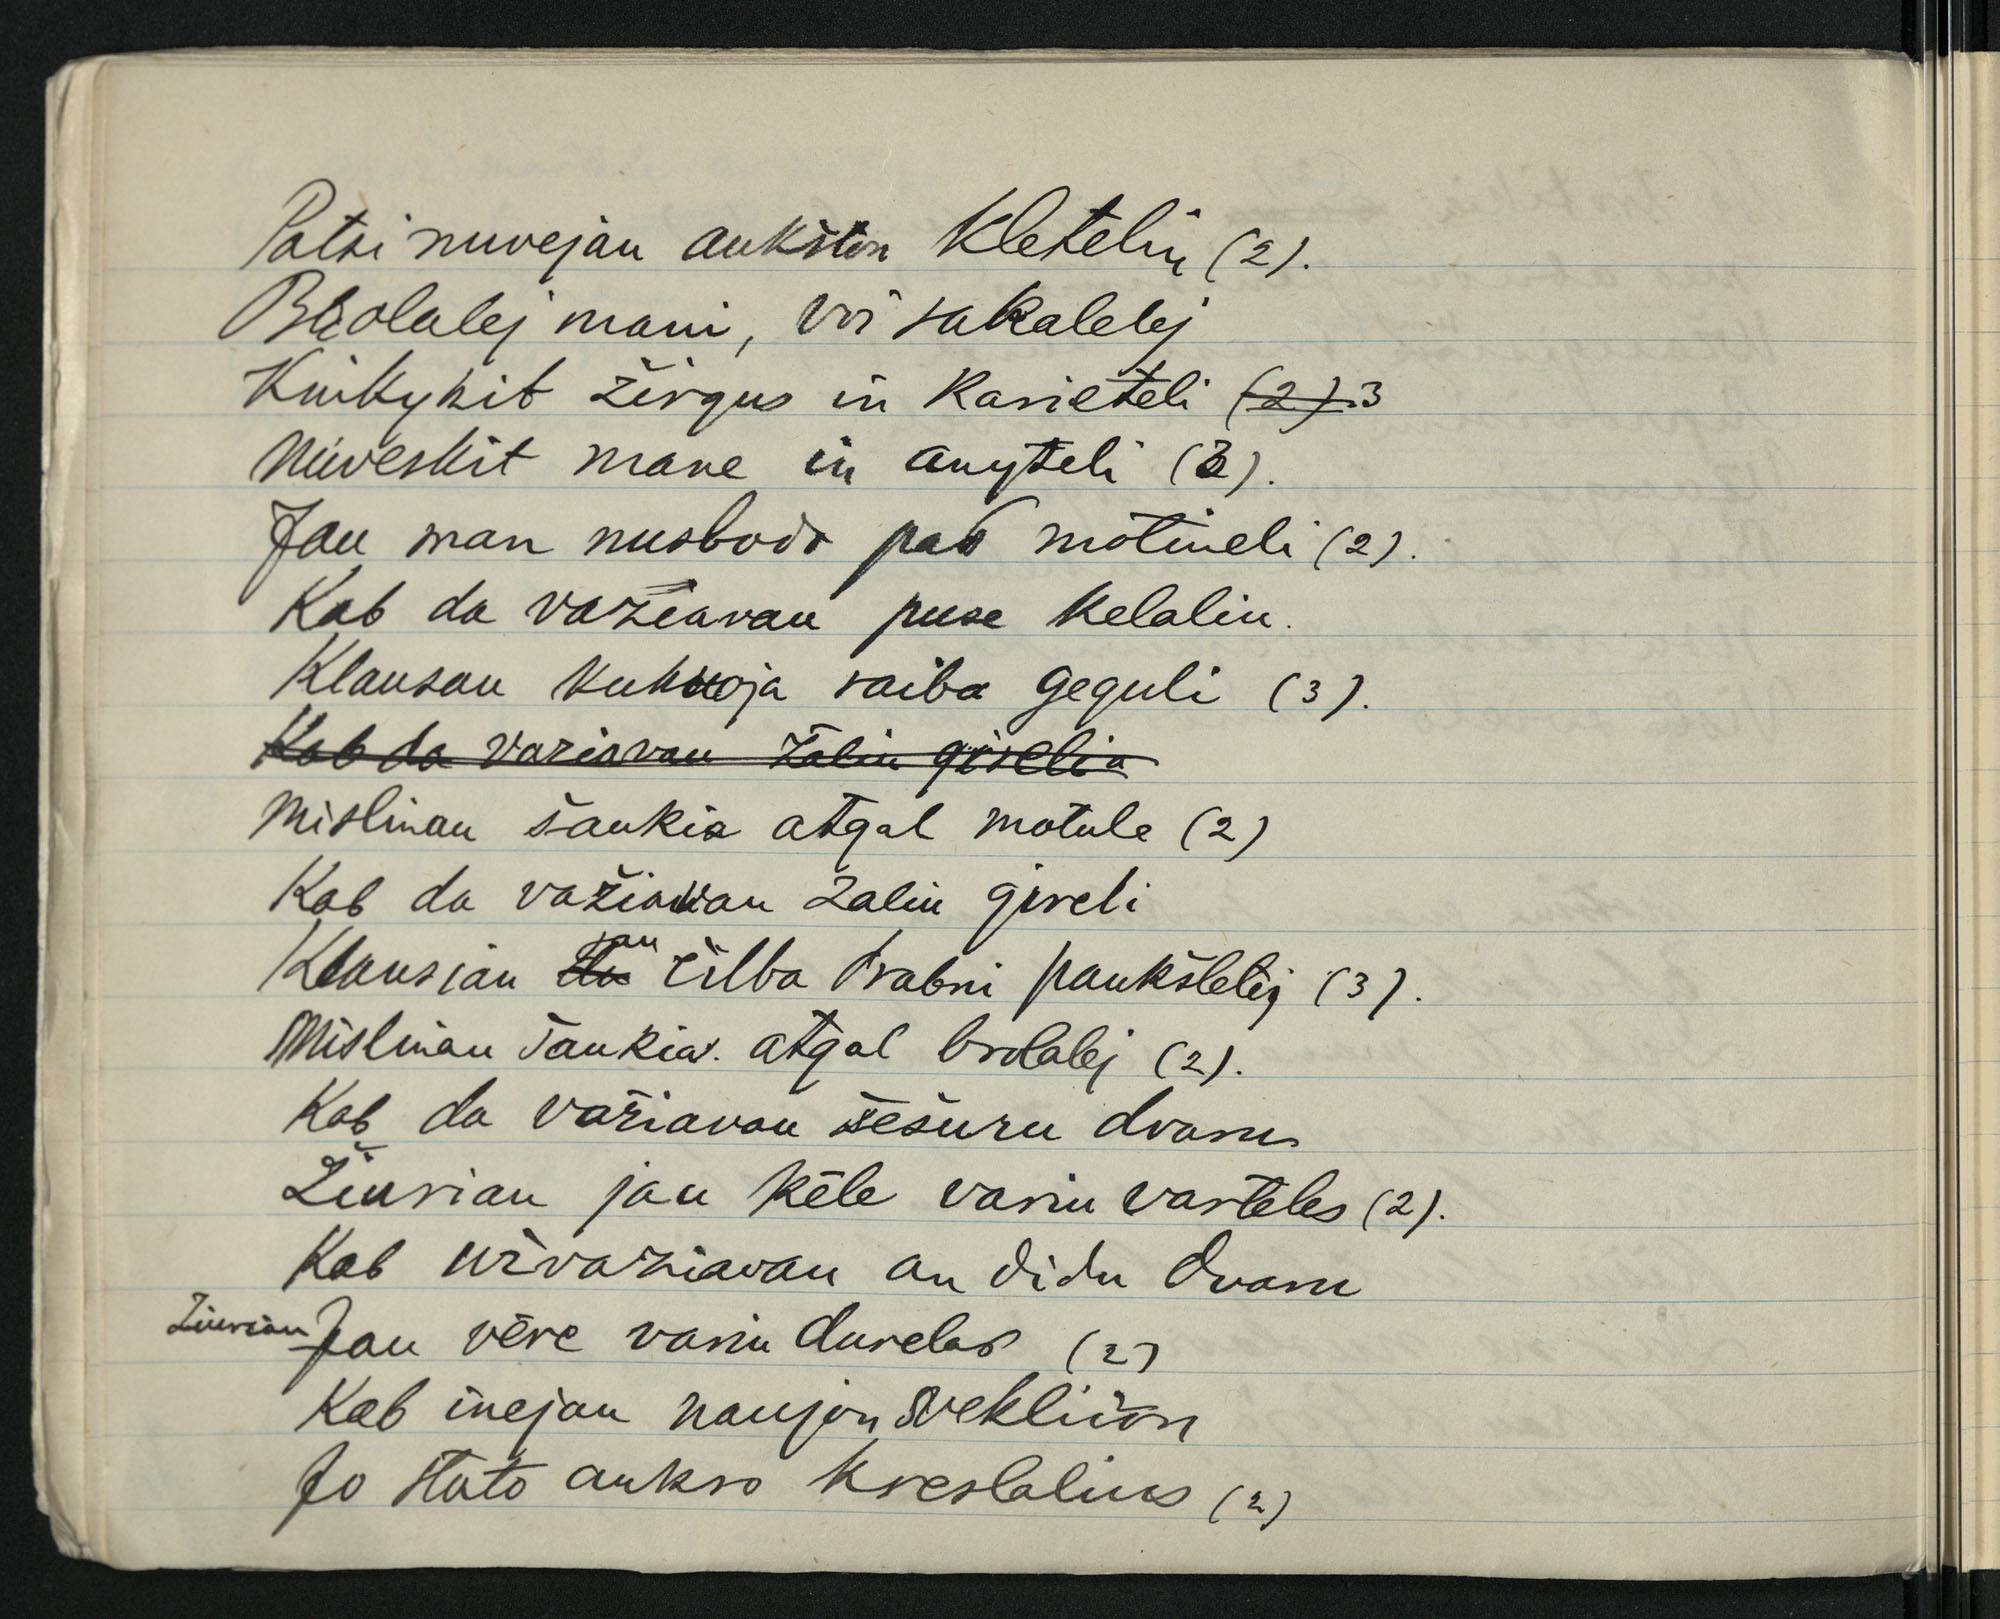 Patsi nuvejau aukšton kletelin (2).
Brolalej mani, voi sakalelej
Kinkykit žirgus in karieteli (2). 3
Nuveskit mane in anyteli (3).
Jau man nusbodo pas motineli (2).
Kab da važiavau puse kelalin.
Klausau kukuoja raiba geguli (3).
Kab da važiavau žalin girelin
Mislinau šaukia atgal motule (2)
Kab da važiavau žalin gireli
Klausiau jau čilba drabni paukšletėj (3).
Mislinau šaukia. atgal brolalej (2).
Kab da važiavau šešuru dvaru
Žiuriau jau kėle variu varteles (2).
Kab užvažiavau an didu dvaru
Žiuriau Jau vėre variu durelas (2)
Kab inejau naujon svekličion
Jo stato aukso kreslalius (2)